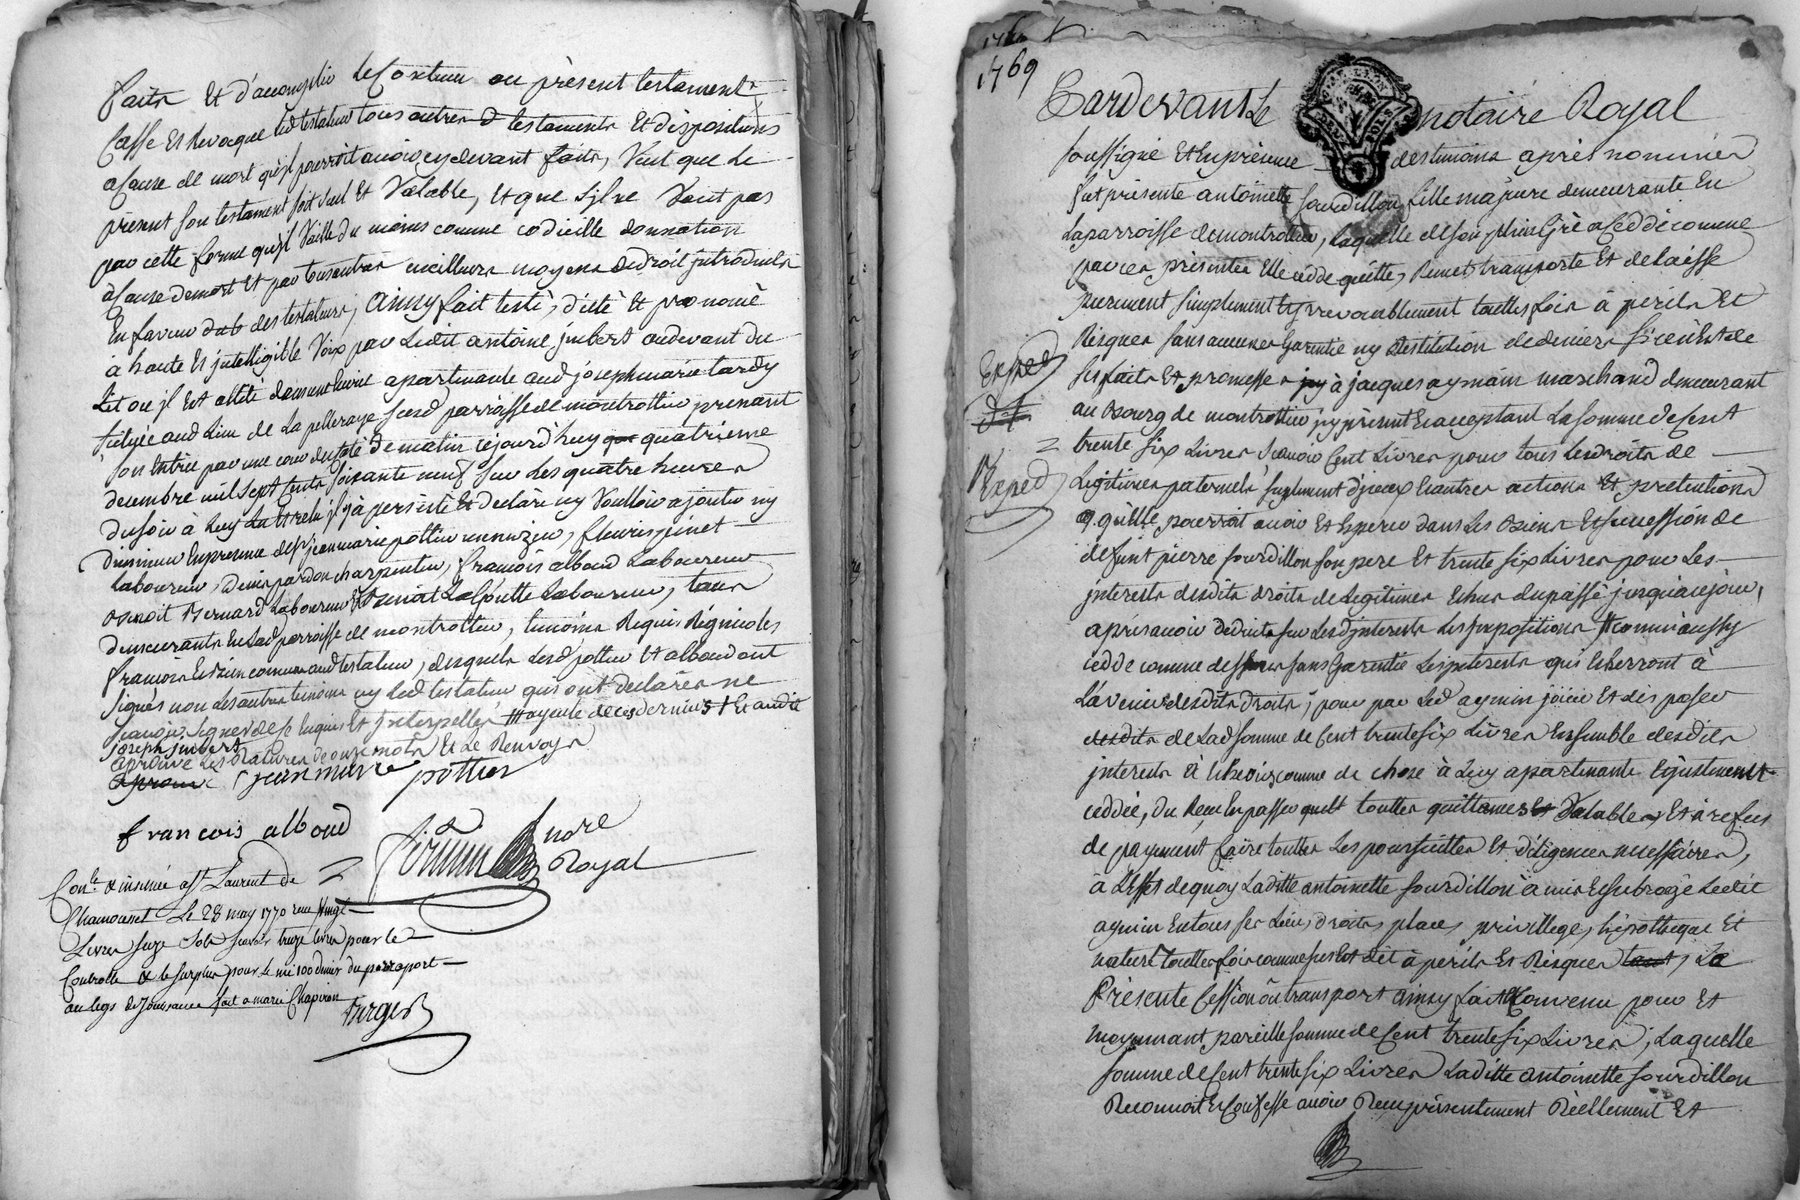 faits Et d'accomplir le Contenu au présent testament
Casse Et Revoque led testateur tous autres testaments Et dispositions
acause de mort qu'il pourroit avoir cydevant faits, Veut que Le
présent son testament soit seul Et Valable, Et que S'il ne Vaut pas
par cette forme qu'il Vaille du moins comme codicille donnation
àCause demort Et par tous autres meilleurs moyens dedroit introduits
En faveur des testateurs, Ainsy fait testé, dicté Et prononcé
à haute Et jntelligible Voix par Ledit antoine jmbert audevant du
Lit ou jl Est allité apartenante aud joseph marie tardy
scituée aud Lieu de La pelleraye susd parroisse de montrottier prenant
son Entrée par une cour du coté de matin cejourd'huy quatrieme
decembre mil sept Cents soixante neuf sur Les quatre heures
dusoir à Luy Lu Et relu jl y à persisté Et declaré ny Vouloir ajouter ny
diminuer Enpresence de sr jean marie pottier, fleury
Laboureur, denis pardon charpentier, francois alboud Laboureur
Benoit Bernard Laboureur Et Benoit Lagoutte Laboureur, tous
demeurants En Lad parroisse de montrottier, temoins Requis Régnicoles
francois Et bien connus aud testateur, desquels Lesd pottier Et alboud ont
signés non Les autres temoins ny Led testateur qui ont declarés ne
scavoir signer de ce Enquis Et jnterpellés
joseph jmbert
aprouvé Les Ratures de onze mots Et Le Renvoys
jean marie pottier
francois alboud
nore
Royal
Conlé & insinué a St Laurent de
Chamousset Le 28 may 1770 reçu Vingt
Livres seize sols scavoir treize livres pour le
Controlle & le surplus pour le mi 100 denier du par raport
au legs de Jouissance fait a marie Chapiron
1769
Pardevant Le notaire Royal
soussigné Et Enpresence des temoins après nommés
fut présente antoinette sourdillon fille majeure demeurante En
La parroisse de montrottier, Laquelle de son plein Gré a Ceddé comme
par ces présentes Elle cedde quitte, Remet transporte Et delaisse
purement simplement Et jrrevocablement touttesfois à perils Et
Risques sans aucunes Garentie ny Restitution de deniers si ce n'Est de
ses faits Et promesses à jacques aymain marchand demeurant
au Bourg de montrottier jcy présent Et acceptant La somme de Cent
trente six Livres scavoir Cent Livres pour tous Les droits de
Legitimes paternels suplement d'jceux Et autres actions Et pretentions
qu'elle pourroit avoir Et Esperer dans Les Biens Et succession de
defunt pierre sourdillon son pere Et trente six Livres pour Les
jnterests desdits droits de Legitimes Echus du passé jusqu'acejour,
aprés avoir deduits sur Lesd jnterests Les jmpositions comme aussy
cedde comme dessus sans Garentie Les jnterests qui Echerront à
L'avenir desdits droits; pour par Led aymin jouir Et disposer
desdits de Lad somme de Cent trente six Livres Ensemble desdits
jnterests à Echeoir comme de chose à Luy apartenante Et justement
ceddée, du Reçu En passer touttes quittances Valables, Et à refus
de payement faire touttes Les poursuittes Et diligences necessaires,
à L'effet dequoy Laditte antoinette sourdillon à mis Et subrogé Ledit
aymin En tous ses Lieu, droits, place, privillege, hipotheque Et
nature touttesfois comme jl est dit à perils Et Risques, La
Présente Cession Et transport ainsy fait Et Convenu pour Et
moyennant pareille somme de Cent trente six Livres, Laquelle
somme de Cent trente six Livres Laditte antoinette sourdillon
Reconnoit Et Confesse avoir Reçu présentement Réellement Et
Exped
Exped